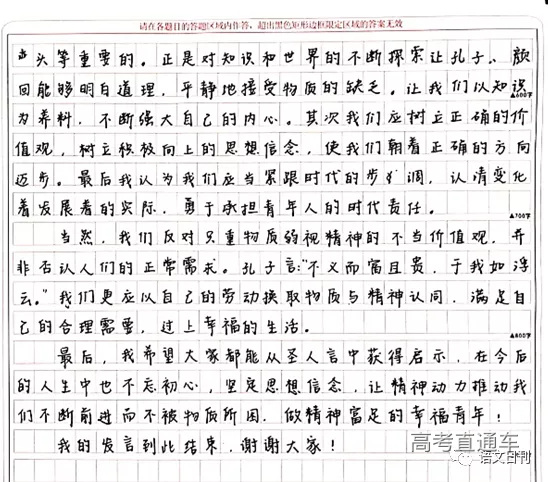 请在各题目的答题区域内作答，超出黑色矩形边框限定区域的答案无效
头等重要的。正是对知识和世界的不断探索让孔子、颜
回能够明白道理，平静地接受物质的缺乏。让我们以知识
▲600字
为养料，不断强大自己的内心。其次我们应树立正确的价
值观，树立积极向上的思想信念，使我们朝着正确的方向
迈步。最后我认为我们应当紧跟时代的步调，认清变化
着发展着的实际，勇于承担青年人的时代责任。
▲700字
当然，我们反对只重物质弱视精神的不当价值观，并
非否认人们的正常需求。孔子言:“不义而富且贵，于我如浮
云。”我们更应以自己的劳动换取物质与精神认同，满足自
己的合理需要，过上幸福的生活。
▲800字
最后，我希望大家都能从圣人言中获得启示，在今后
的人生中也不忘初心，坚定思想信念，让精神动力推动我
们不断前进而不被物质所困，做精神富足的幸福青年！
我的发言到此结束，谢谢大家！
高考直通车
语文日刊